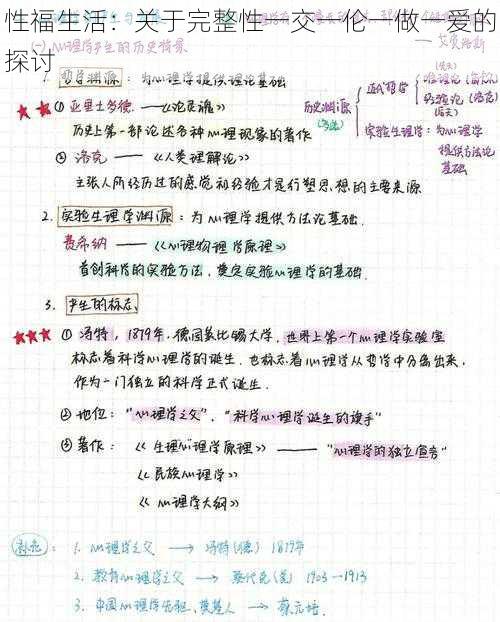 性福生活：关于完整性一交一伦一做一爱的探讨
(一) 心理学产生的历史背景
1. 哲学渊源：为心理学提供理论基础
① 亚里士多德 ——《论灵魂》
历史上第一部论述各种心理现象的著作
② 洛克 ——《人类理解论》
主张人所经历过的感觉和经验才是行塑思想的主要来源
历史渊源
近代哲学
经验论
实验生理学：为心理学提供方法论基础
2. 实验生理学渊源：为心理学提供方法论基础.
费希纳 ——《心理物理学原理》
首创科学的实验方法，奠定实验心理学的基础.
3. 产生的标志
① 冯特，1879年，德国莱比锡大学，世界上第一个心理学实验室
标志着科学心理学的诞生，也标志着心理学从哲学中分离出来，
作为一门独立的科学正式诞生.
② 地位："心理学之父"，"科学心理学诞生的旗手"
③ 著作：《生理心理学原理》—— "心理学的独立宣言"
《民族心理学》
《心理学大纲》
补充：1. 心理学之父 → 冯特(德) 1879年
2. 教育心理学之父 → 桑代克(美) 1903-1913
3. 中国心理学先驱、奠基人 → 蔡元培.